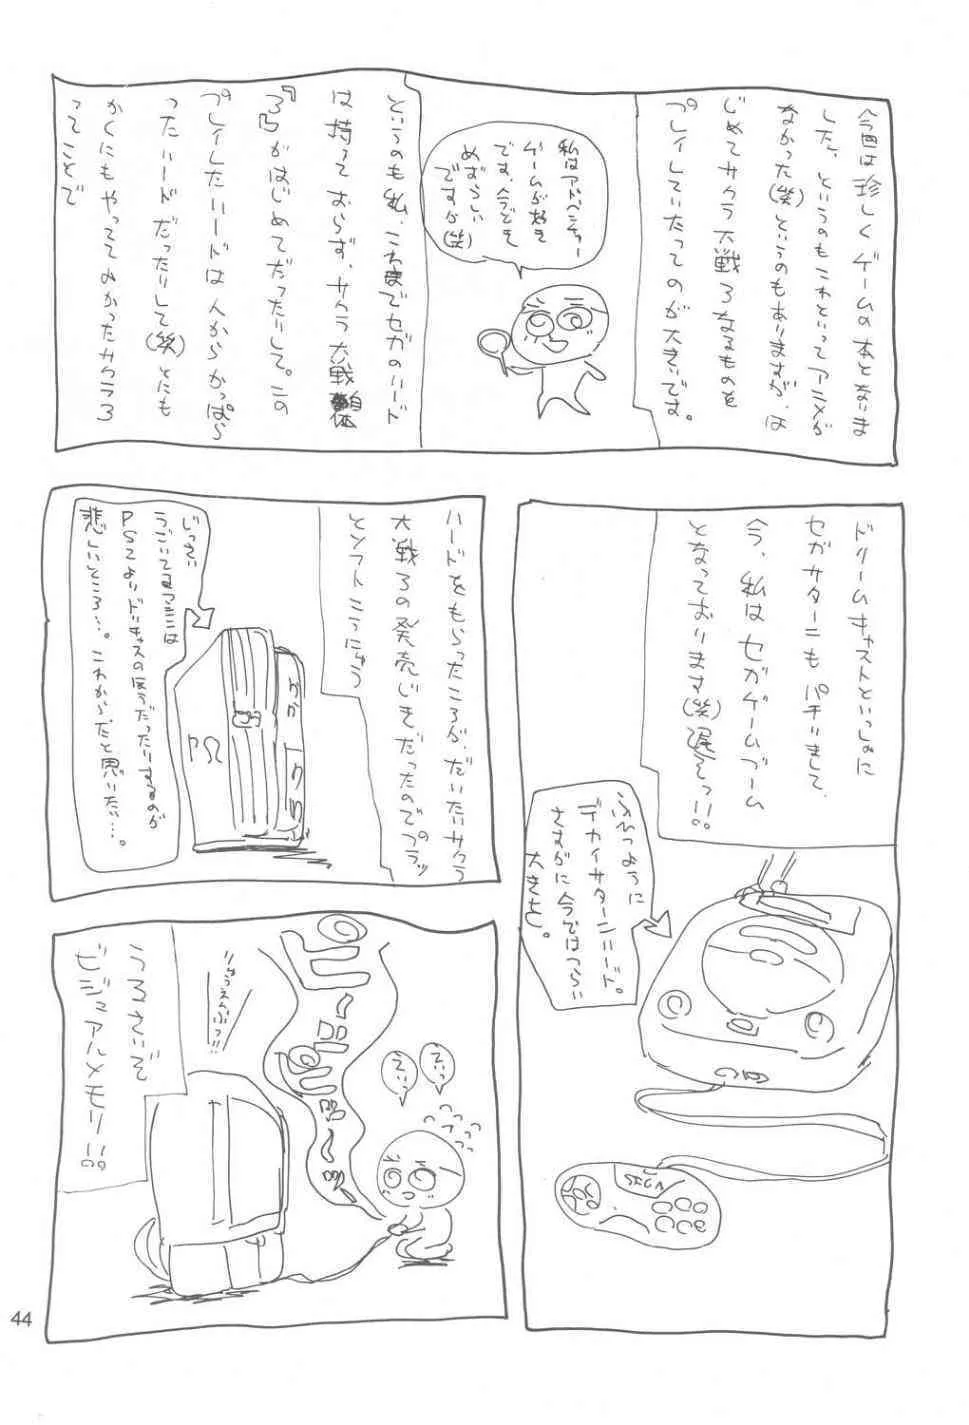 今回は珍しくゲームの本となりま
した。というのもこれといってアニメが
なかった(笑)というのもありますが、は
じめてサクラ大戦3なるものを
プレイしていたってのが大きいです。
私はアドベンチャー
ゲームが好き
です、今どき
めずらしい
ですが(笑)
というのも私、これまでセガのハード
は持っておらず、サクラ大戦自体
『3』がはじめてだったりして。この
プレイしたハードは人からかっぱら
ったハードだったりして(笑)とにも
かくにもやっててよかったサクラ3
ってことで
ドリームキャストといっしょに
セガサターンもパチりまして、
今、私はセガゲームブーム
となっております(笑)遅えっ!!。
ふれつように
デカイサターンハード。
さすがに今ではつらい
大きさ。
ハードをもらったころが、だいたいサクラ
大戦3の発売じきだったのでプラッ
とソフトこうにゅう
じっさい
うごいてるマシンは
PS2よりドリキャスのほうだったりするのが
悲しいところ…。これからだと思いたい…。
うるさいぞ
ビジュアルメモリー!!。
ピーーー
えいっ
えいっ
44